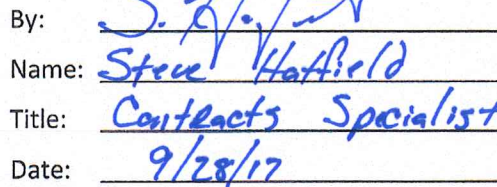 By:
Name: Steve Hatfield
Title: Contracts Specialist
Date: 9/28/17